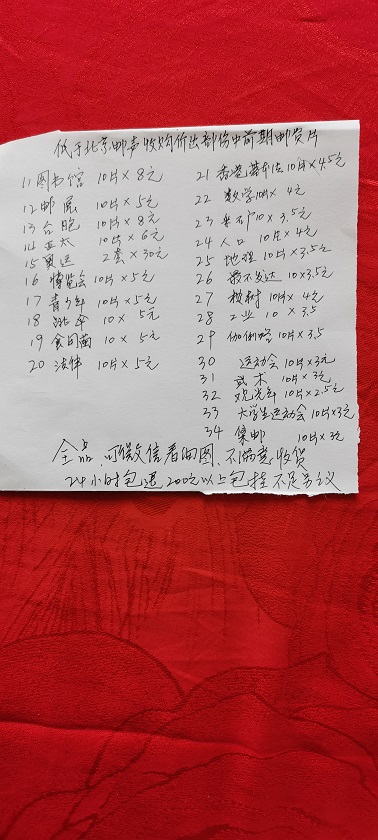 低于北京邮票收购价出部份中前期邮资片
11 图书馆 10片×8元
12 邮展 10片×5元
13 台胞 10片×8元
14 亚太 10片×6元
15 奥运 2套×30元
16 博览会 10片×5元
17 青少年 10片×5元
18 跳伞 10× 5元
19 食用菌 10 × 5元
20 法律 10片×5元
21 香港基本法 10片×4.5元
22 数学 10片× 4元
23 10 × 3.5元
24 人口 10片×4元
25 地理 10片×3.5元
26 最不发达 10×3.5元
27 植树 10片× 4元
28 工业 10 × 3.5
29 伽俐略 10片×3.5
30 运动会 10片×3元
31 武术 10片×3元
32 观光年 10片×2.5元
33 大学生运动会 10片×3元
34 集邮 10片×3元
全品、可供微信看曲图、不满意收货
24小时包退 200元以上包挂 不足另议